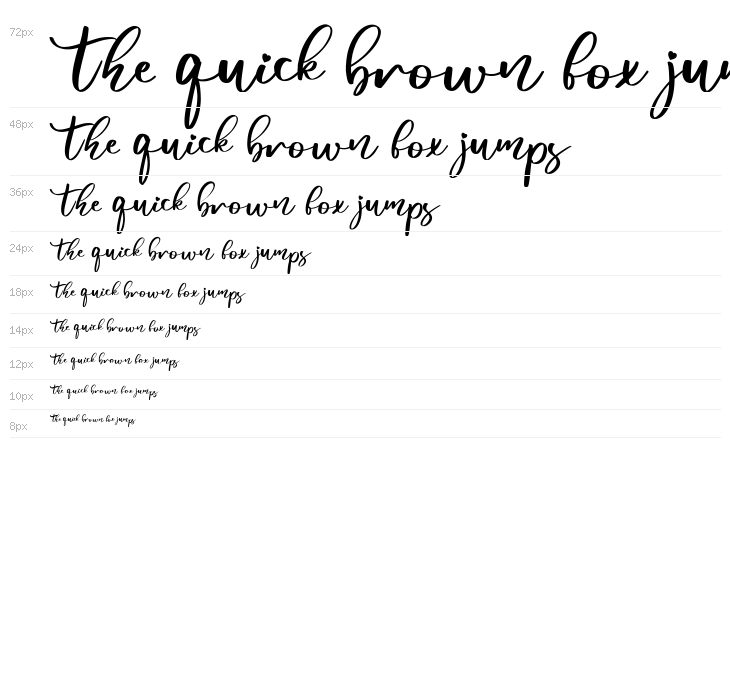 72px the quick brown fox jum
48px the quick brown fox jumps
36px the quick brown fox jumps
24px the quick brown fox jumps
18px the quick brown fox jumps
14px the quick brown fox jumps
12px the quick brown fox jumps
10px the quick brown fox jumps
8px the quick brown fox jumps